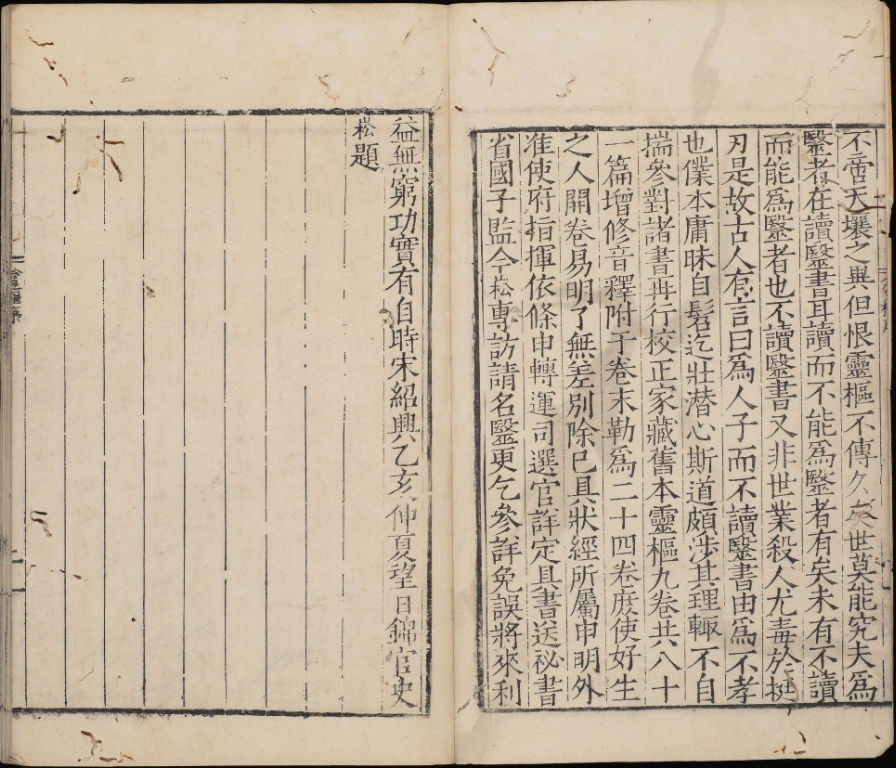 不啻天壤之異但恨靈樞不傳久矣世莫能究夫爲
醫者在讀醫書耳讀而不能爲醫者有矣未有不讀
而能爲醫者也不讀醫書又非世業殺人尤毒於梃
刃是故古人有言曰爲人子而不讀醫書由爲不孝
也僕本庸昧自髫迄壯潜心斯道頗涉其理輙不自
揣參對諸書再行校正家藏舊本靈樞九卷共八十
一篇增修音釋附于卷末勒爲二十四卷庻使好生
之人開卷易明了無差別除已具狀經所屬申明外
准使府指揮依條申轉運司選官詳定具書送祕書
省國子監今崧專訪請名醫更乞參詳免誤將來利
益無窮功實有自時宋紹興乙亥仲夏望日錦官史
崧題